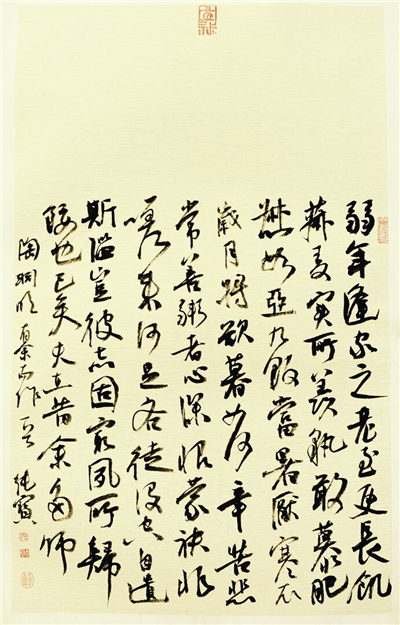 弱年逢家乏老至更長飢
菽麦实所羡孰敢慕甘肥
惄如亞九飯當暑厭寒衣
歲月將欲暮如何辛苦悲
常善粥者心深恨蒙袂非
嗟來何足吝徒沒空自遺
斯濫豈彼志固窮夙所歸
餒也已矣夫在昔余多師
陶淵明 而作